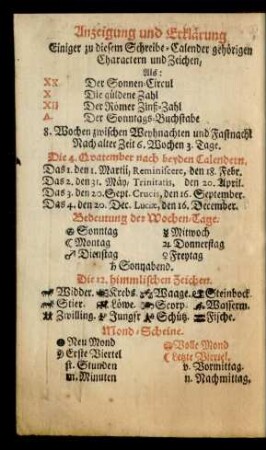 Anzeigung und Erklärung
Einiger zu diesem Schreibe-Calender gehörigen
Charactern und Zeichen,
Als:
XX Der Sonnen-Circul
X Die güldene Zahl
XII Der Römer Zinß-Zahl
A. Der Sonntags-Buchstabe
8. Wochen zwischen Weyhnachten und Fastnacht
Nach alter Zeit 6. Wochen 3. Tage.
Die 4. Quatember nach beyden Calendern.
Das 1. den 1. Martii, Reminiscere, den 18. Febr.
Das 2. den 31. Mäy, Trinitatis, den 20. April.
Das 3. den 20. Sept. Crucis, den 16. September.
Das 4. den 20. Dec. Luciæ, den 16. December.
Bedeutung der Wochen-Tage.
☉ Sonntag ☿ Mittwoch
☾ Montag ♃ Donnerstag
♂ Dienstag ♀ Freytag
♄ Sonnabend.
Die 12. himmlischen Zeichen.
Widder. Krebs. Waage. Steinbock
Stier. Löwe. Scorp. Wasserm.
Zwilling. Jungfr Schütz. Fische.
Mond-Scheine.
Neu Mond Volle Mond
Erste Viertel Letzte Viertel.
st. Stunden v. Vormittag.
m. Minuten n. Nachmittag,